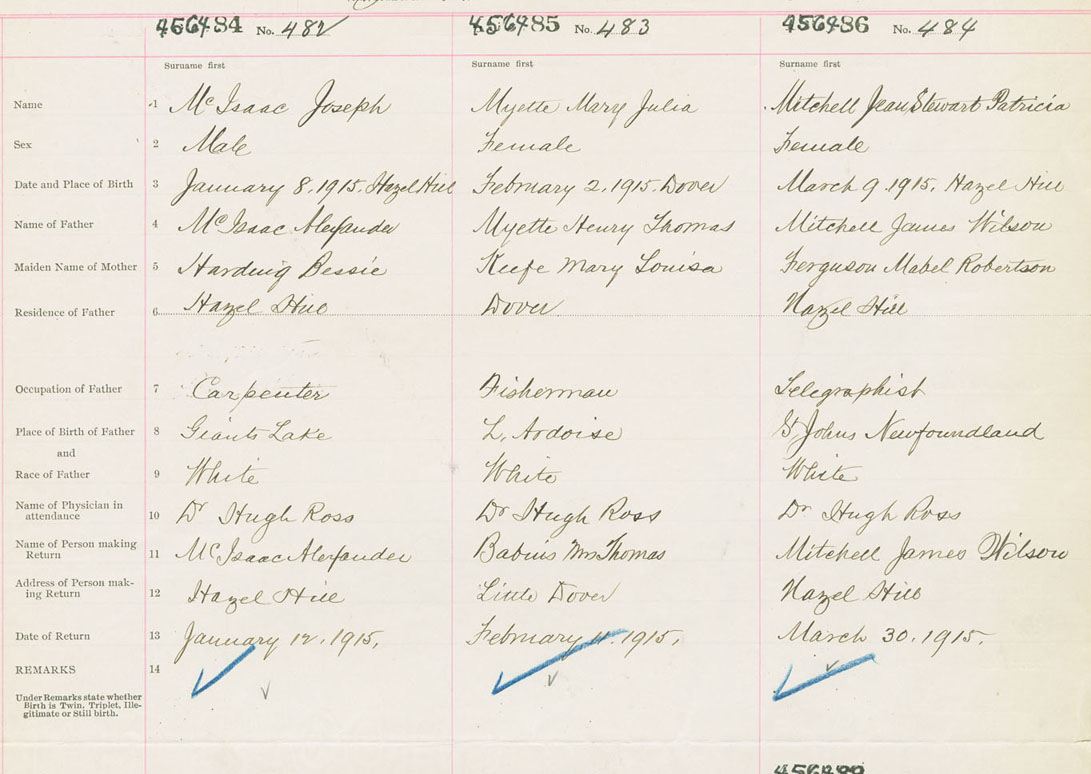 456484 No. 482 456485 No. 483 456486 No. 484
Surname first Surname first Surname first
Name 1 McIsaac Joseph Myette Mary Julia Mitchell Jean Stewart Patricia
Sex 2 Male Female Female
Date and Place of Birth 3 January 8, 1915. Hazel Hill February 2, 1915. Dover March 9 1915. Hazel Hill
Name of Father 4 McIsaac Alexander Myette Henry Thomas Mitchell James Wilson
Maiden Name of Mother 5 Harding Bessie Keefe Mary Louisa Ferguson Mabel Robertson
Residence of Father 6 Hazel Hill Dover Hazel Hill
Occupation of Father 7 Carpenter Fisherman Telegraphist
Place of Birth of Father 8 Giants Lake L. Ardoise St Johns Newfoundland
and
Race of Father 9 White White White
Name of Physician in
attendance 10 Dr Hugh Ross Dr Hugh Ross Dr Hugh Ross
Name of Person making
Return 11 McIsaac Alexander Mrs Thomas Mitchell James Wilson
Address of Person mak-
ing Return 12 Hazel Hill Little Dover Hazel Hill
Date of Return 13 January 12, 1915, February 11. 1915, March 30. 1915.
REMARKS 14
Under Remarks state whether
Birth is Twin, Triplet, Ille-
gitimate or Still birth.